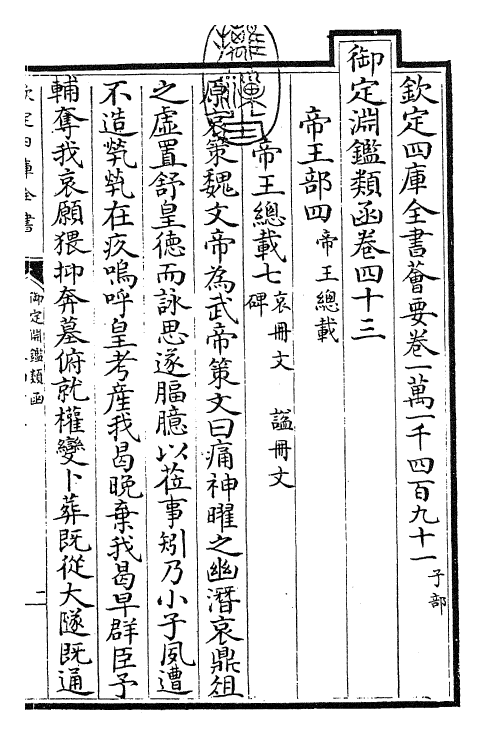 欽定四庫全書薈要卷一萬一千四百九十一 子部
御定淵鑑類函卷四十三
帝王部四 帝王總載
帝王總載七 哀冊文 諡冊文 碑
原哀策魏文帝為武帝策文曰痛神曜之幽潛哀鼎俎
之虛置舒皇德而詠思遂腷臆以莅事矧乃小子夙遭
不造煢煢在疚嗚呼皇考產我曷晚棄我曷早群臣子
輔奪我哀願猥抑奔墓俯就權變卜葬既從大隧既通
欽定四庫全書
御定淵鑑類函